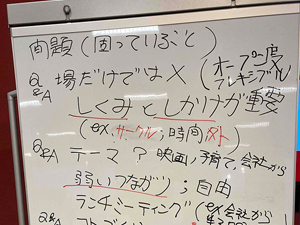 問題（困っていること）
Q&A 場だけでは× （オープン
フレキシブル）度
しくみとしかけが重要
（ex. サークル；時間外）
Q&A テーマ？映画、子育て、会社から
弱いつながり；自由
ランチミーティング（ex 会社から
Q&A